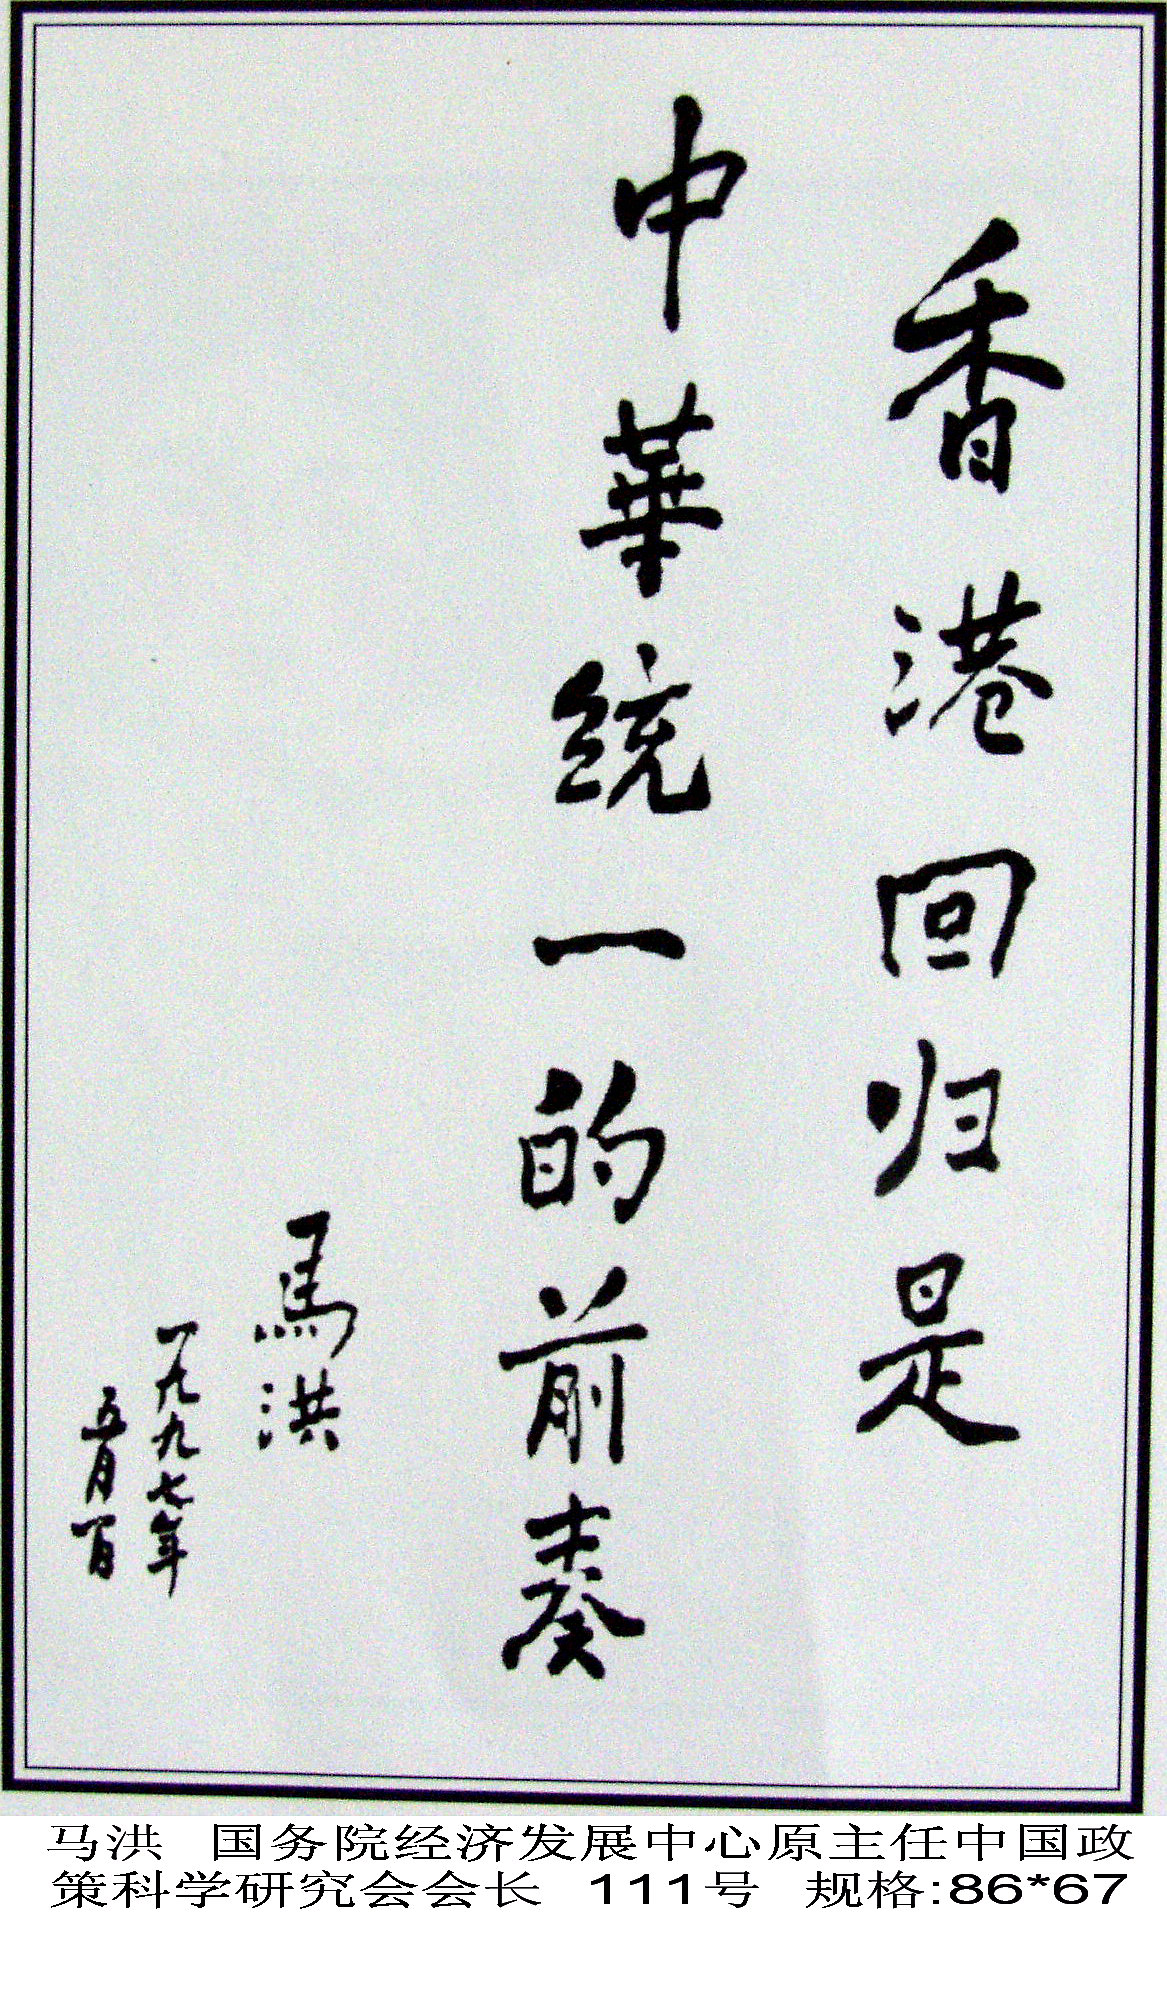 香港回归是
中華統一的前奏
馬洪
一九九七年
五月一日
马洪 国务院经济发展中心原主任中国政
策科学研究会会长 111号 规格:86*67